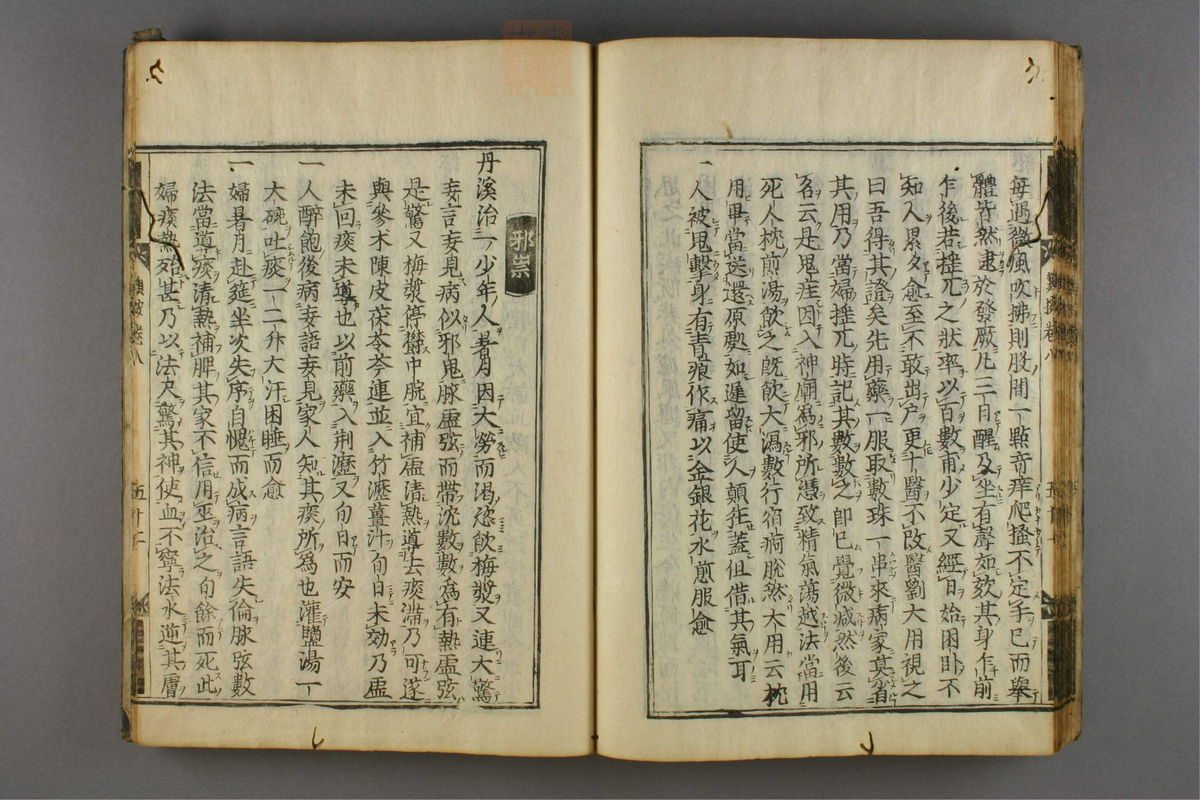 每遇微風吹拂則股間一點奇痒爬搔不定手已而舉
體皆然逮於發厥凡三日醒及坐有聲如欬其身乍前
乍後若捶兀之狀率以百數甫少定又經日始困卧不
知人累夕愈至不敢出户更十醫不改醫劉大用視之
曰吾得其證矣先用藥一服取數珠一串來病家莫省
其用乃當婦捶兀時記其數數之卽已覺微减然後云
名云是鬼疰因入神廟爲邪所憑致精氣蕩越法當用
死人枕煎湯飲之旣飲大瀉數行宿痾脫然大用云枕
用畢當送還原處如遲留使人顛狂蓋但借其氣耳
一人被鬼擊身有青痕作痛以金銀花水煎服愈
邪祟
丹溪治一少年人暑月因大勞而渴恣飲梅漿又連大驚
妄言妄見病似邪鬼脉虛弦而帶沈數數爲有熱虛弦
是驚又梅漿停鬱中脘宜補虛清熱導去痰滯乃可遂
與參术陳皮茯苓芩連並入竹瀝薑汁旬日未効乃虛
未回痰未導也以前藥入荆瀝又旬日而安
一人醉飽後病妄語妄見家人知其痰所爲也灌鹽湯一
大碗吐痰一二升大汗困睡而愈
一婦暑月赴筵坐次失序自愧而成病言語失倫脉弦數
法當道痰清熱補脾其家不信用巫治之旬餘而死此
婦痰熱殆甚乃以法尺驚其神使血不寧法水逆其膚
類案卷八
五十二